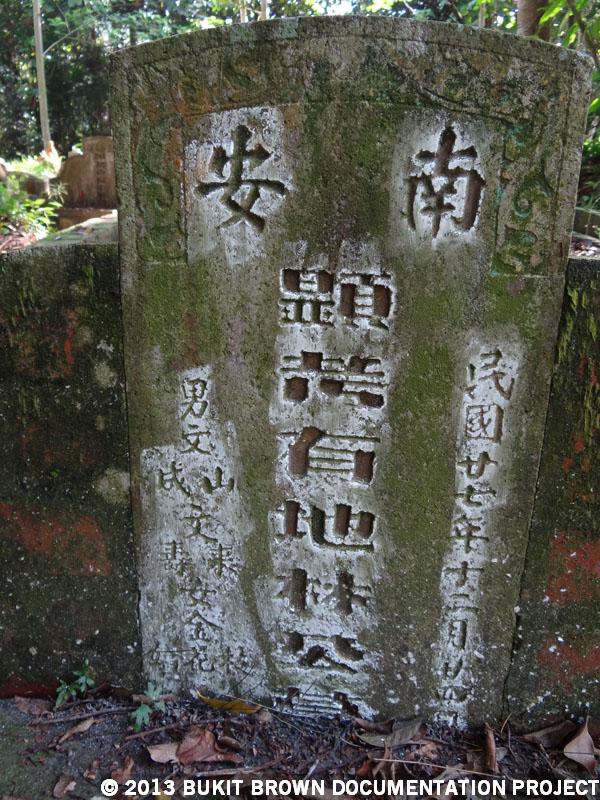 南安
民國廿七年十二月廿四
顯考有地林公
男文山成文來壽女金花枝
© 2013 BUKIT BROWN DOCUMENTATION PROJECT